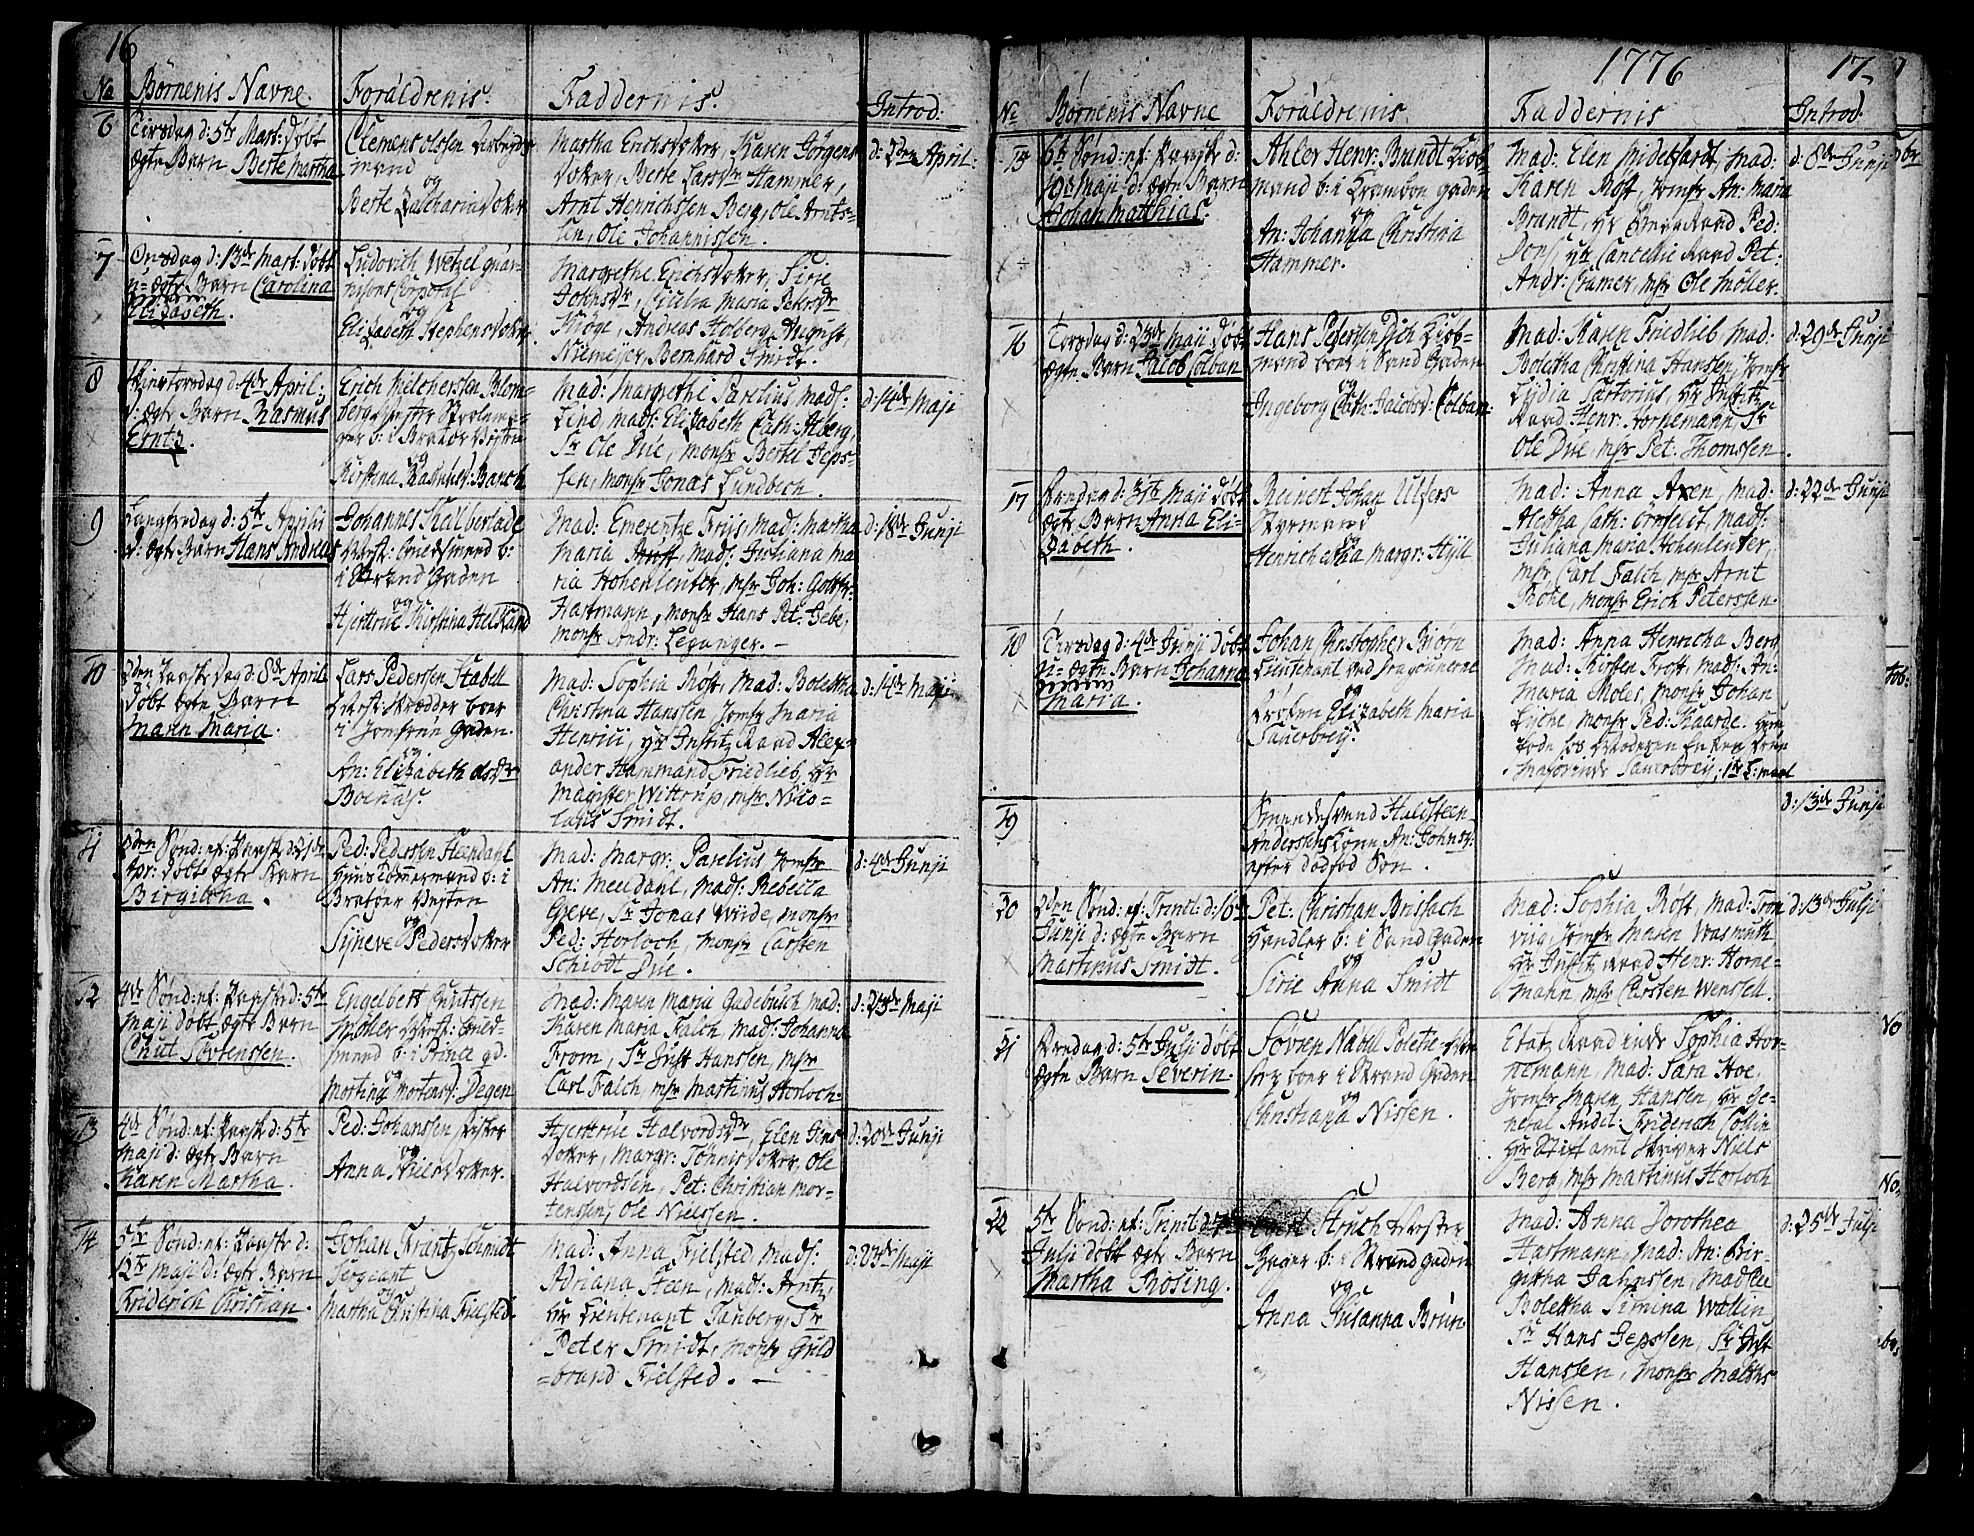 16
No Børnenis Navne. Forældrenis. Faddernis. Introd:
6
Tirsdag d: 5te Mart: døbt
ægte Barn Berte Martha
Clemens Olssen Arbeyds
mand
og
Berte Zachariædotter
Martha Erichsdotter, Karen Jörgens
dotter, Berte Larsdr Hammer,
Arnt Henrichssen Berg, Ole Arnts=
sen, Ole Johannissen.
d: 2den April
7
Onsdag d: 13de Mart: døbt
u=ægte Barn Carolina
Elizabeth.
Ludovich Wetzel guar-
nisons Corporal
og
Elizabeth Stephensdotter
Margrethe Erichsdotter, Sirie
Johnsdr, Giulia Maria Petersdr
Kröge, Andreas Holberg, August
Niemeyer, Bernhard Smidt.
8
Skiertorsdag d: 4de April:
d: ægte Barn Rasmus
Erntz.
Erich Melcherssen Blom-
berg
b: i Bratør Vesten
og
Kirstina Rasmusd: Barsch
Mad: Margrethe Parelius, Mads:
Lind, Mads: Elizabeth Cath: Alberg,
Sr Ole Düe, Monsr Bertel Jeps-
sen, Monsr Jonas Lundbech.
d: 14de Maji
9
Langfredag d: 5te Aprilis
d: ægte Barn Hans Andreas
Johannes Kalberlade
b:
i Strand Gaden
og
Hjertrue Kirstina Helkand
Mad: Emerentze Friis, Mads: Martha
Maria, Mads: Juliana Ma
ria Hohenleuter, Msr Joh: Gottfr:
Hartmann, Monsr Hans Pet: Jebe,
Monsr Andr: Leganger. -
d: 18de Junji
10
2den Paaske Dag d: 8de April
døbt ægte Barn
Maren Maria.
Lars Pedersen Stabell
Skrædder boer
i Jomfrue Gaden.
og
An: Elizabeth Olsdr
Boenäs.
Mad: Sophia Röst, Mad: Boletha
Christina Hanssen, Jomfr Maria
Henrici, Hr Justitz Raad Alex-
ander Hammand Friedlieb, Hr
Magister Wittrup, Msr Nico-
laus Smidt.
d: 14de Maji
11
2den Sønd: ef: Paaske d: 21de
Apr: døbt ægte Barn
Birgitha.
Ped: Pedersen Steendahl
Huustømermand b: i
Bratøer Vesten
og
Syneve Pedersdotter
Mad: Margr: Parelius, Jomfr
An: Meeldahl, Mads: Rebecca
Greve, Sr Jonas Wiide, Monsr
Ped: Horloch, Monsr Carsten
Schiødt Düe.
d: 4de Junji
12
4de Sønd: ef: Paaske d: 5te
Maji døbt ægte Barn
Cnut Sörtenssen.
Engelbert Cnutssen
Møller
b: i Prins: gd.
og
Morting Mortensd: Degen
Mad: Maren Maria Gadebusch, Mad:
Karen Maria Falch, Mads: Johanna
From, Sr Just Hanssen, Msr
Carl Falch, Msr Martinus Horloch.
d: 23de Maji
13
4de Sønd: ef: Paaske d: 5te
Maji d: ægte Barn
Karen Martha.
Ped: Johanssen Fisker
og
Anna Nielsdotter.
Hjertrue Halvordsdr, Elen Jens
dotter, Margr: Tönnisdotter, Ole
Halvordsen, Pet: Christian Mor-
tenssen, Ole Nielssen.
d: 20de Junji
14
5te Sønd: ef: Paaske d:
12te Maji d: ægte Barn
Friderich Christian.
Johan Frantz Schmidt
Sergeant
og
Martha Christina Fielsted.
Mad: Anna Fielsted, Mads:
Adriana Steen, Mads: Arntz,
Hr Lieutenant Tanberg, Sr
Peter Smidt, Monsr Guld
=brand Fielsted. -
d: 23de Maji
1776 17
No Børnenis Navne Forældrenis Faddernis Introd.
15
6te Sønd: ef: Paaske d:
19de Maji d: ægte Barn
Johan Matthias.
Ahler Henr: Brandt Kiøb
mand b: i Kramboe gaden
og
An: Johanna Christina
Hammer.
Mad: Elen Middelfardt, Mad:
Karen Röst, Jomfr An: Maria
Brandt, Hr Raad Ped:
Dons, Hr Cancellie Raad Pet:
Andr: Cramer, Msr Ole Møller.
d: 8de Junji
16
Torsdag d: 23de Maji døbt
ægte Barn Jacob Colban
Hans Peterssen Kiøb-
mand boer i Sand Gaden
og
Ingeborg Cath: Jacobsd: Colban
Mad: Karen Friedlieb, Mad:
Boletha Christina Hanssen, Jomfr
Lydia Sartorius, Hr Justitz
Raad Henr: Hornemann, Sr
Ole Düe, Msr Pet: Thomssen.
d: 29de Junji
17
Fredag d: 31te Maji døbt
ægte Barn Anna Eli-
zabeth.
Reinert Johan Ulfers
Styrmand
og
Henrichatha Margr: Hyll
Mad: Anna Axen, Mad:
Aletha Cath: Örnfeldt, Mads:
Juliana Maria Hohenleuter,
Msr Carl Falch, Msr Arnt
Röhe, Monsr Erich Peterssen.
d: 22de Junji
18
Tirsdag d: 4de Junji døbt
u=ægte Barn Johanna
Maria.
Johan Christopher Biörn
Lieutenant ved Dragonnerne
og
Frøken Elizabeth Maria
Sauerbrey.
Mad: Anna Henricha Berg
Mad: Kirsten Frost, Mad: An:
Maria Moles, Monsr Johan
Lyche, Monsr Ped: Kaarde.
Majorinde Sauerbrey;
19
Smedesvend Haldsteen
Anderssens Kone, An: Johnsd:
efter dødfød Søn.
d: 13de Junji
20
2den Sønd: ef: Trinit: d: 16de
Junji d: ægte Barn
Martinus Smidt.
Pet: Christian Brissach
Handler b: i Sand Gaden
og
Sirie Anna Smidt
Mad: Sophia Röst, Mad: Tron
viig, Jomfr Maren Wasmuth
Hr Justitz Raad Henr: Horne-
mann, Msr Carsten Wenssell.
d: 13de Julji
21
Fredag d: 5te Julji døbt
ægte Barn Severin.
Søvren Nabul Politie-
boer i Strand Gaden
og
Christiana Nissen.
Etatz Raadinde Sophia Hor-
nemann, Mad: Sara Hoe,
Jomfr Maren Hanssen, Hr Ge-
neral Audit: Friderich Collin
Hr Stiftamtskriver Niels
Berg, Msr Martinus Horloch
22
5te Sønd: ef: Trinit: d: 7de
Julji døbt ægte Barn
Martha Rosing.
Struch Mester
Bager b: i Strand gaden
og
Anna Susanna Brun
Mad: Anna Dorothea
Hartmann, Mad: An: Bir-
githa Jahnssen,
Boletha Simina Wallin
Sr Hans Jepssen, Sr Just
Hanssen, Monsr Malthe
Nissen.
d: 25de Julji